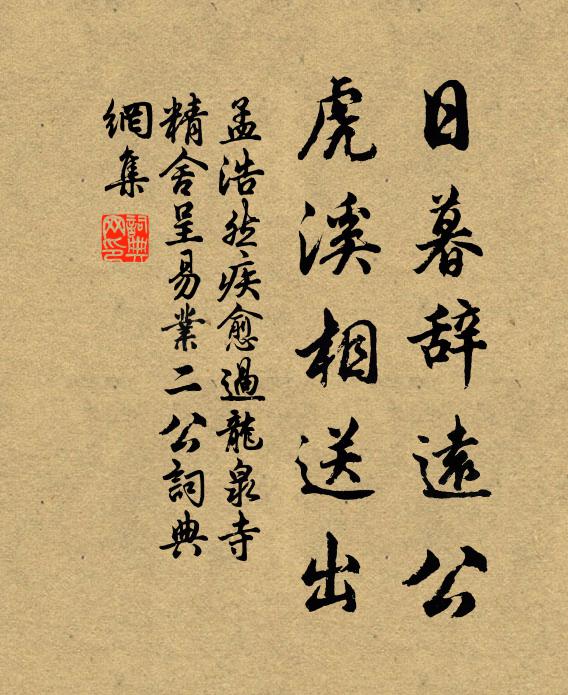 日暮辞遠公
虎溪相送出
孟浩然疾愈過龍泉寺
精舍呈易業二公詞典
網集
詞典網印